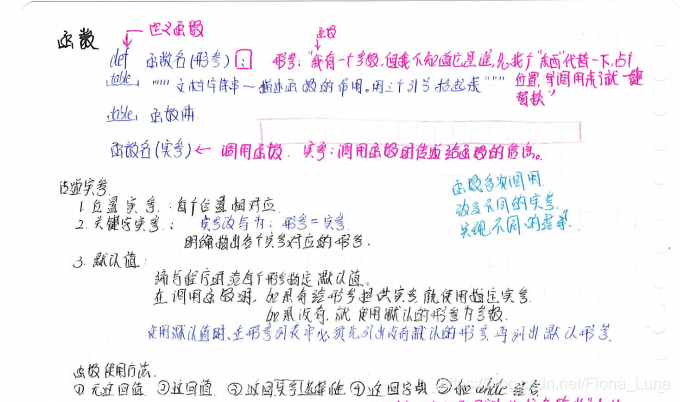 函数
定义函数
函数
def 函数名(形参): 形参:"我有一个参数,但我不知道它是谁,先找个"东西"代替一下,占个
位置,等调用来了就一键
替换"
table """文档字符串—描述函数的作用。用三个引号括起来"""
table 函数体
函数名(实参) ← 调用函数. 实参:调用函数时传递给函数的信息。
传递实参
1. 位置实参:每个位置相对应
2. 关键字实参: 实参改写为:形参=实参
明确指出各个实参对应的形参.
3. 默认值:
编写程序时给每个形参指定默认值。
在调用函数时,如果有给形参提供实参就使用指定实参.
如果没有,就使用默认的形参为参数.
使用默认值时,在形参列表中必须先列出没有默认的形参,再列出默认形参.
函数多次调用
改变不同的实参.
实现不同的结果.
函数使用方法.
①无返回值 ②返回值 ③ ④返回字典 ⑤和while结合
dn.net/Fiona_Luna